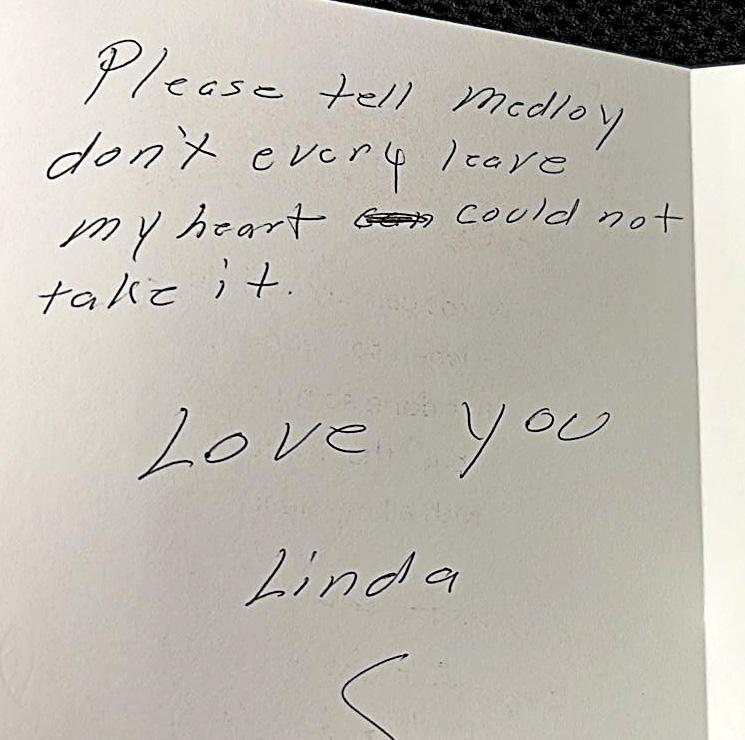 Please tell medloy
don't every leave
my heart could not
take it.
Love you
Linda